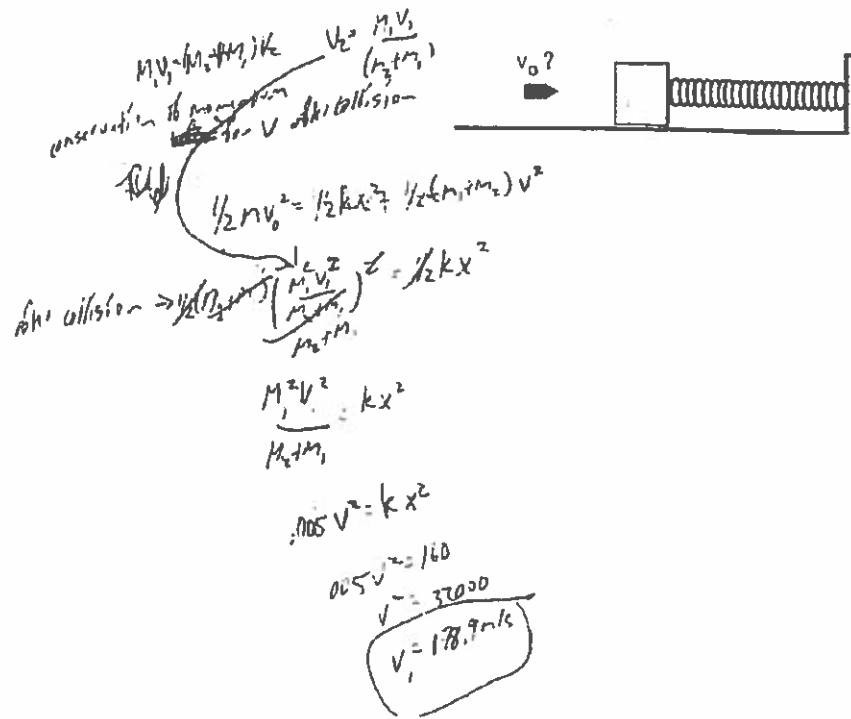 M₁V₁=(M₂+M₁)V₂
V₂= M₁V₁/(m₂+m₁)
v₀?
conservation of momentum
for V after collision
1/2 mv₀² = 1/2 kx² + 1/2 (m₁+m₂) v²
after collision → 1/2 (m₂+m₁) (M₁V₁/(M₂+M₁))² = 1/2 kx²
M₂+M₁
M₁²V²/(M₂+M₁) = kx²
.005 V² = kx²
.005 v² = 160
v² = 32000
V₁ = 178.9 m/s